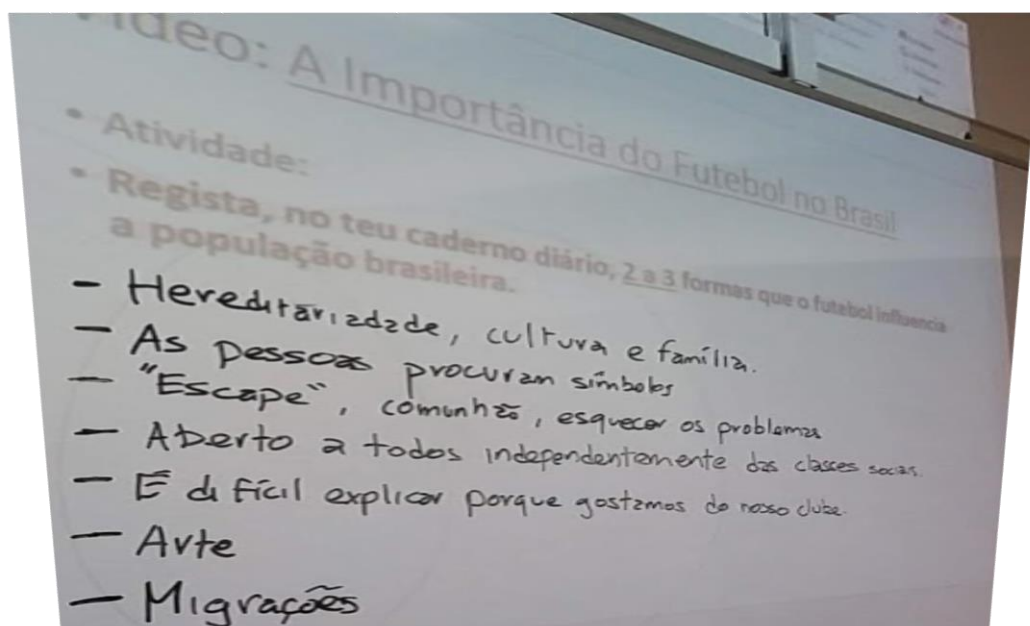 ídeo: A Importância do Futebol no Brasil
• Atividade:
• Regista, no teu caderno diário, 2 a 3 formas que o futebol influencia
a população brasileira.
- Hereditariadade, cultura e família.
- As pessoas procuram símbolos
- "Escape", comunhão, esquecer os problemas
- Aberto a todos independentemente das classes sociais.
- É difícil explicar porque gostamos do nosso clube.
- Arte
- Migrações